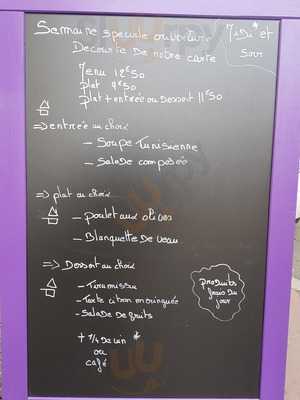 Semaine speciale ouverture
Decouverte De notre carte
Midi et
Soir
Menu 12€50
plat 9€50
plat + entrée ou Dessert 11€50
=> entrée au choix
- Soupe Tunisienne
- Salade composée
=> plat au choix
- poulet aux olives
- Blanquette De veau
=> Dessert au choix
- Tiramisu
- Tarte citron meringuée
- Salade De fruits
produits
frais du
jour
+ 1/4 De vin *
ou
café